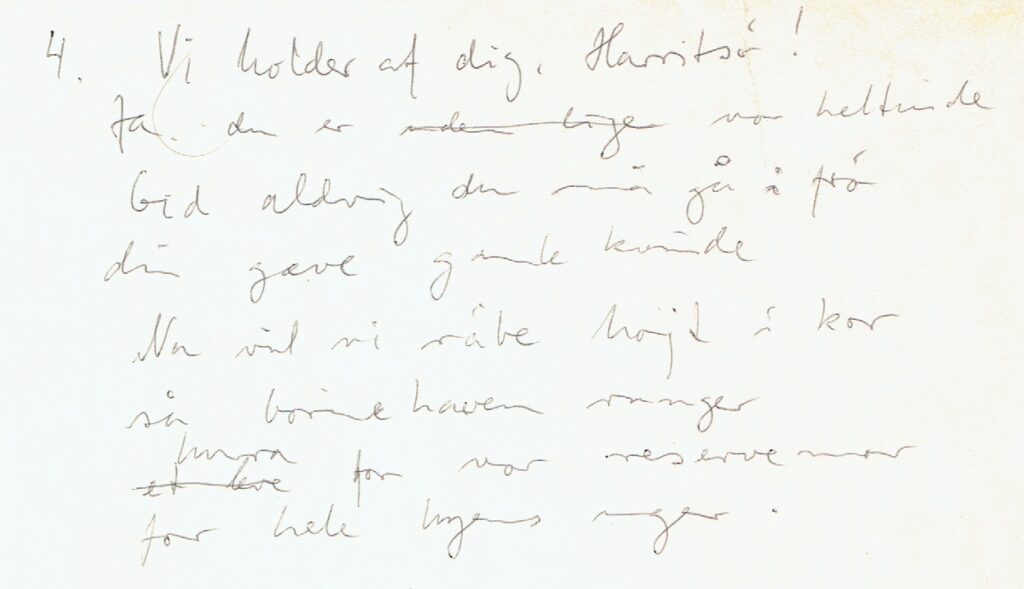 4. Vi holder af dig, Harritsø!
Ja. du er uden lige vor heltinde
Gid aldrig du må gå i frø
din gæve gamle kvinde
Nu vil vi råbe højt i kor
så børnehaven runger
hurra
et leve for vor reservemor
for hele byens unger.